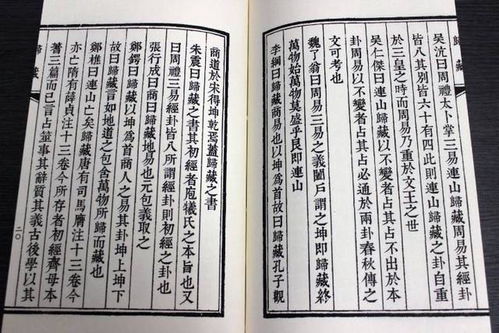 歸藏
吳沈曰周禮太卜掌三易連山歸藏周易其經卦
皆八其別皆六十有四此則連山歸藏卦自重
於三皇之時而周易乃重於文王之世
吳仁傑曰連山歸藏以不變者占其占不出於本
卦周易以不變者占其占必通於兩卦春秋傳之
文可考也
魏了翁曰周易三易之義闔戶謂之坤即歸藏終
萬物始萬物莫盛乎艮即連山
李綱曰歸藏商易也以坤爲首故曰歸藏孔子觀
商道於宋得坤乾焉蓋歸藏之書
朱震曰歸藏之書其初經者庖犧氏之本旨也又
曰周禮三易經卦皆八所謂經卦則初經之卦也
張行成曰商曰歸藏地易也元包義取之
鄭鍔曰歸藏以坤爲首商人之易其卦坤上坤下
故曰歸藏言如地道之包含萬物所歸而藏也
鄭樵曰連山亡矣歸藏唐有司馬膺注十三卷今
亦亡隋有薛貞注十三卷今所存者初經齊母本
蓍三篇而已言占筮事其辭質其義古後學以其
歸藏
二〇